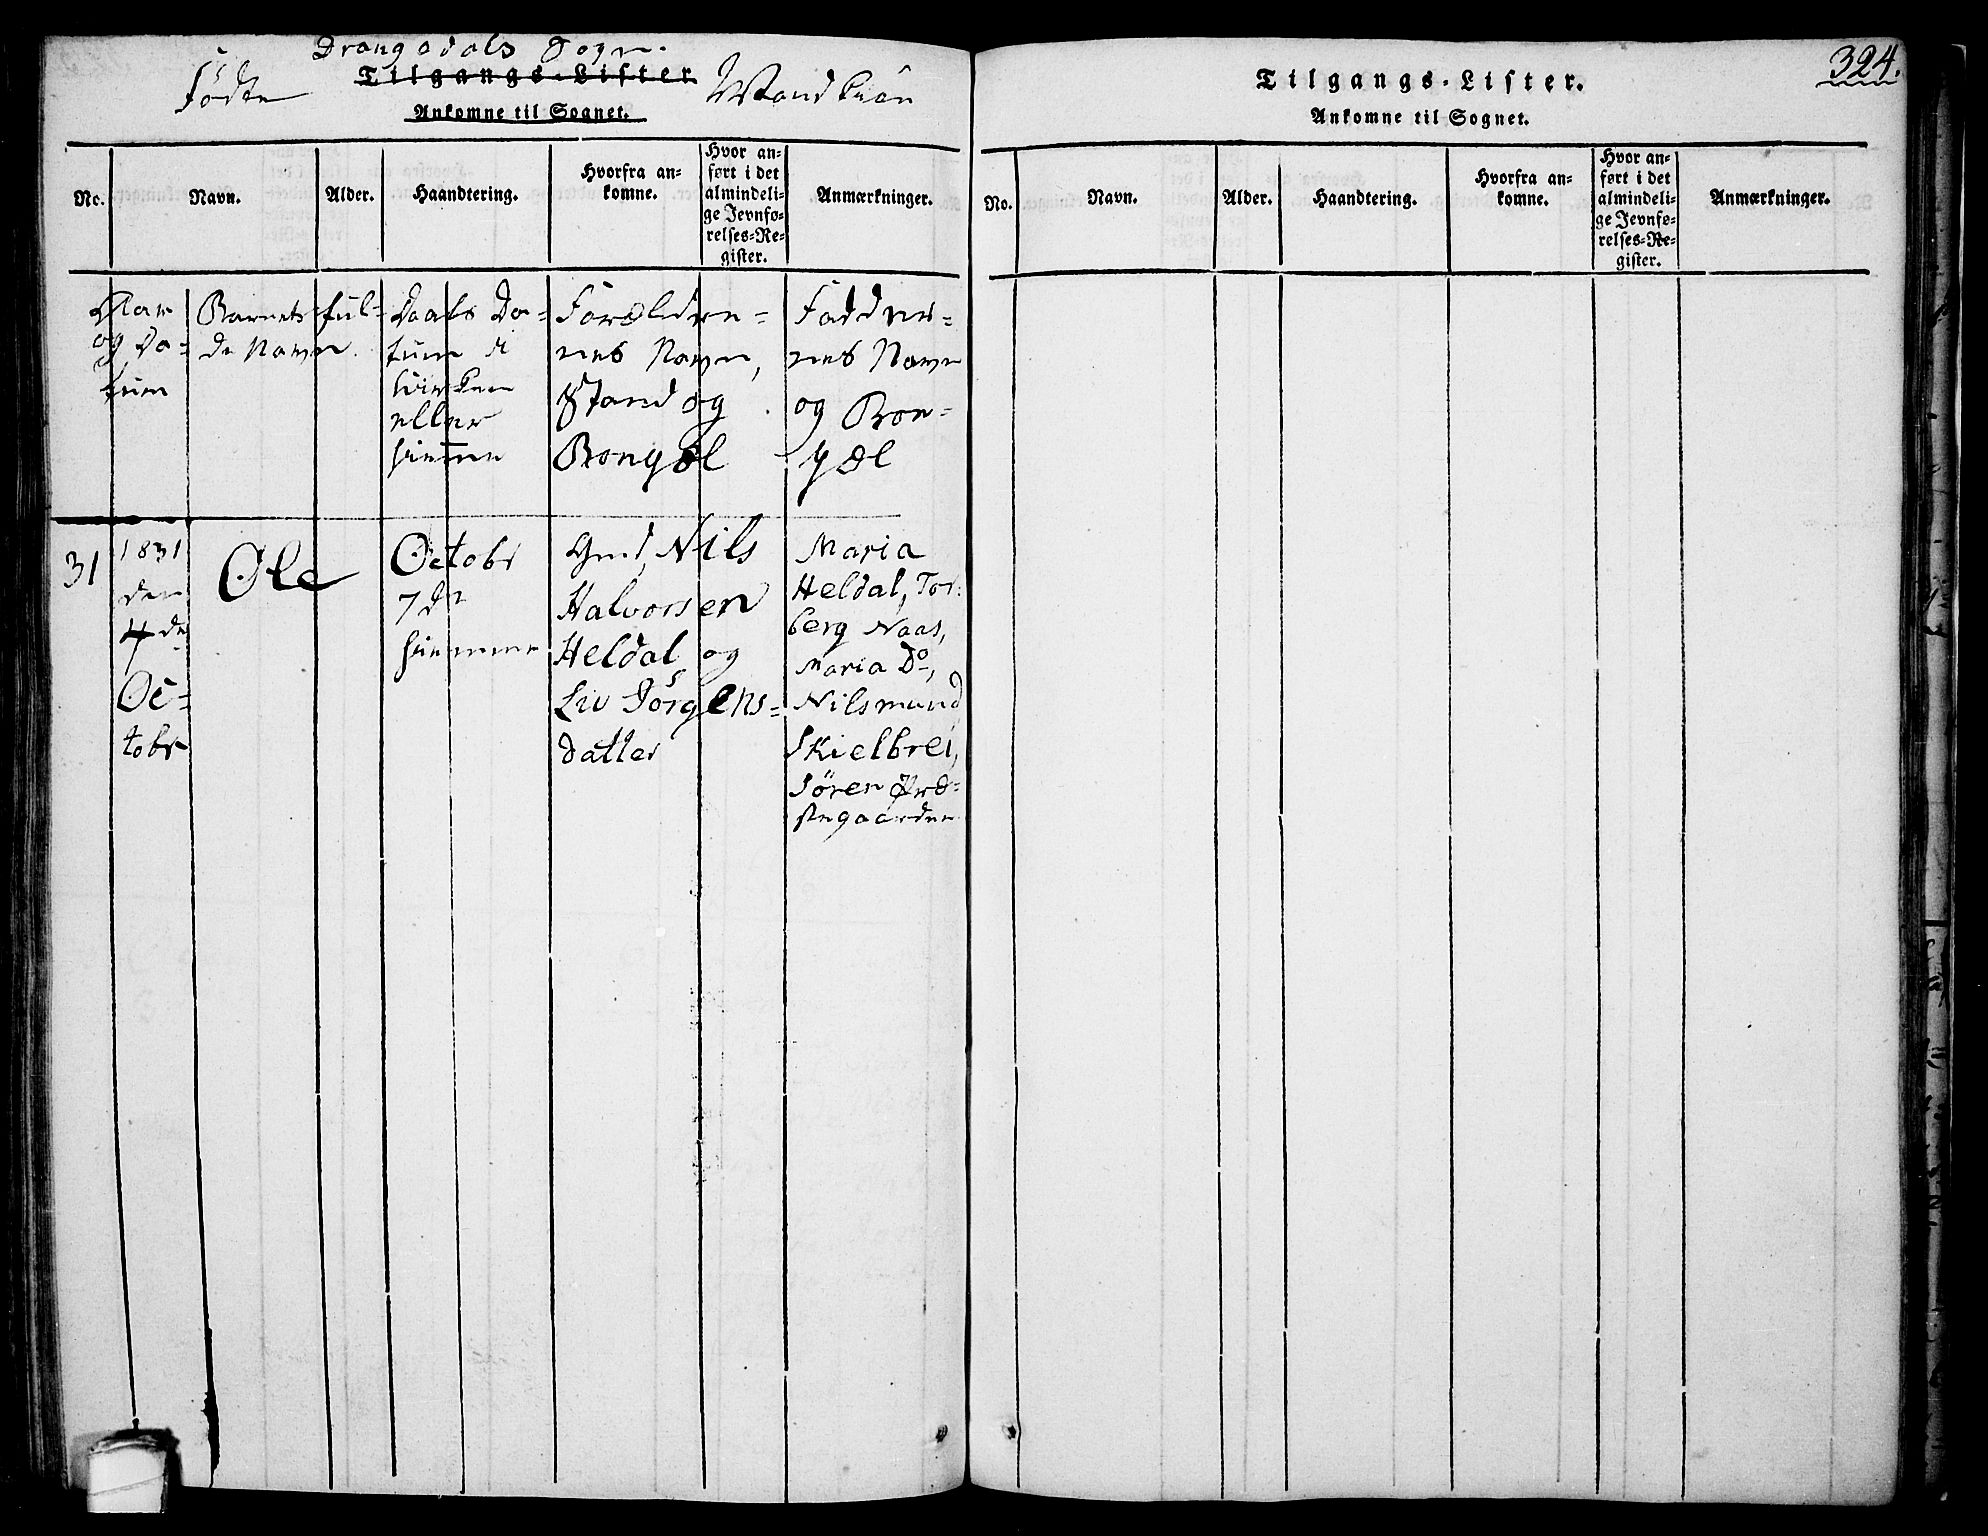 Drangedals Sogn.
Fødte Tilgangs-Lister Mandkiön
Ankomne til Sognet.
No. Navn. Alder. Haandtering. Hvorfra an-
komne. Hvor an-
ført i det
almindeli-
ge Jevnfø-
relses-Re-
gister. Anmærkninger.
Aar
og Da-
tum
Barnets ful-
de Navn.
Daabs Da-
tum i
Kirken
eller
hiemme
Forældre-
nes Navn,
Stand og
Bongæl
Faddrer-
nes Navn
og Bon-
gæl
31
1831
den
4de
Oc-
tobr
Ole
Octobr
7de
hiemme
Gmd, Nils
Halvorsen
Heldal og
Liv Jörgens-
datter
Maria
Heldal, Tor-
berg Naas,
Maria Do,
Nilsmund
Skielbrei,
Sören Præ-
stegaarden
324.
Tilgangs-Lister.
Ankomne til Sognet.
No. Navn. Alder. Haandtering. Hvorfra an-
komne. Hvor an-
ført i det
almindeli-
ge Jevnfø-
relses-Re-
gister. Anmærkninger.